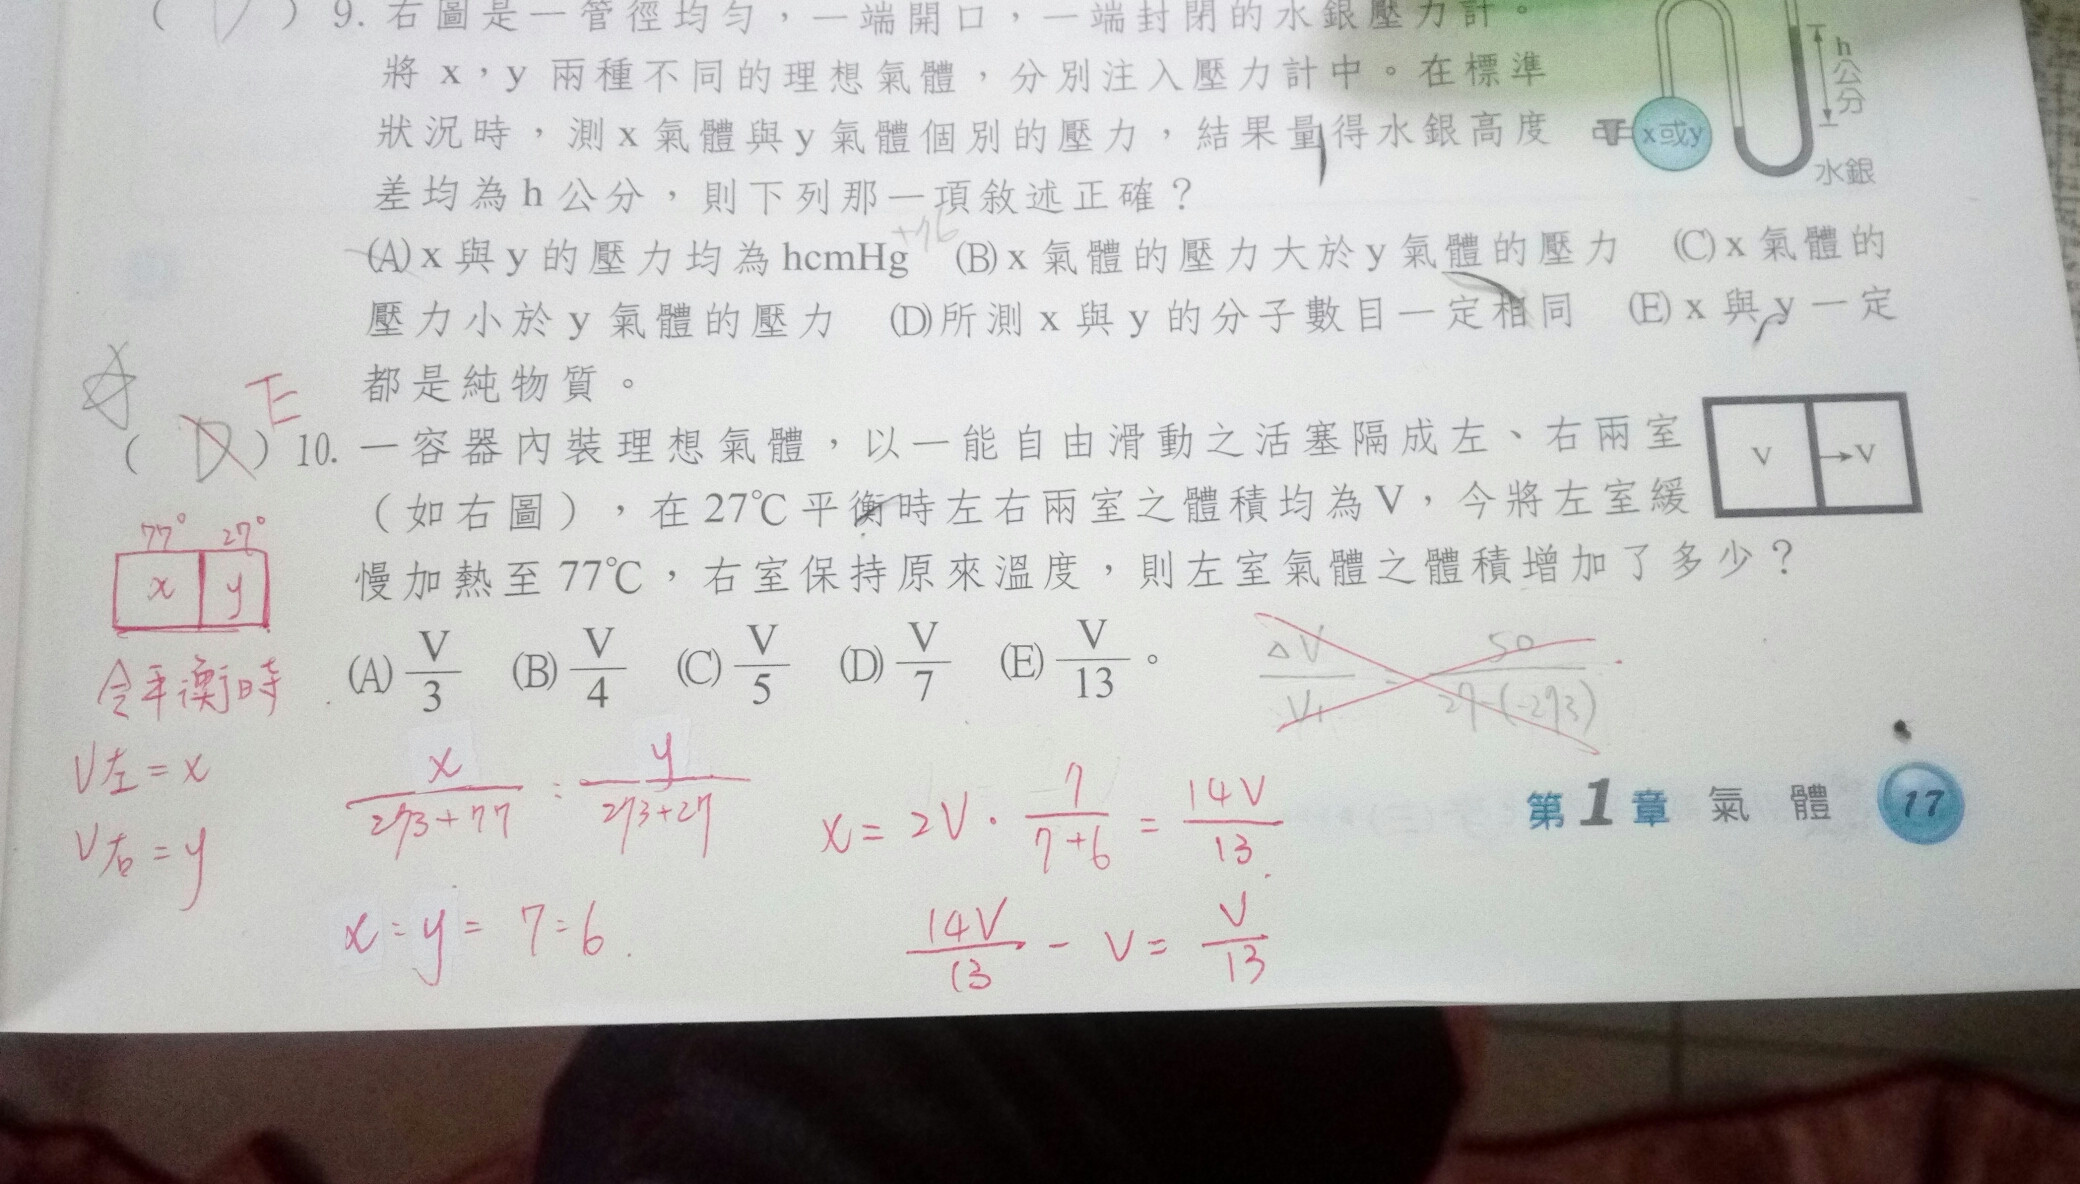 ( ) 9. 右圖是一管徑均勻，一端開口，一端封閉的水銀壓力計。
將 x，y 兩種不同的理想氣體，分別注入壓力計中。在標準
狀況時，測 x 氣體與 y 氣體個別的壓力，結果量得水銀高度
差均為 h 公分，則下列那一項敘述正確？
h公分
x或y
水銀
+76
(A) x 與 y 的壓力均為 hcmHg (B) x 氣體的壓力大於 y 氣體的壓力 (C) x 氣體的
壓力小於 y 氣體的壓力 (D)所測 x 與 y 的分子數目一定相同 (E) x 與 y 一定
都是純物質。
E
( D ) 10. 一容器內裝理想氣體，以一能自由滑動之活塞隔成左、右兩室
（如右圖），在 27℃ 平衡時左右兩室之體積均為 V，今將左室緩
慢加熱至 77℃，右室保持原來溫度，則左室氣體之體積增加了多少？
V →V
(A) V/3 (B) V/4 (C) V/5 (D) V/7 (E) V/13 。
77° 27°
x y
令平衡時
V左 = x
V右 = y
ΔV/V1 = 50/27-(-273)
x/273+77 : y/273+27
x : y = 7 : 6
x = 2V · 7/7+6 = 14V/13
14V/13 - V = V/13
第1章 氣 體 17